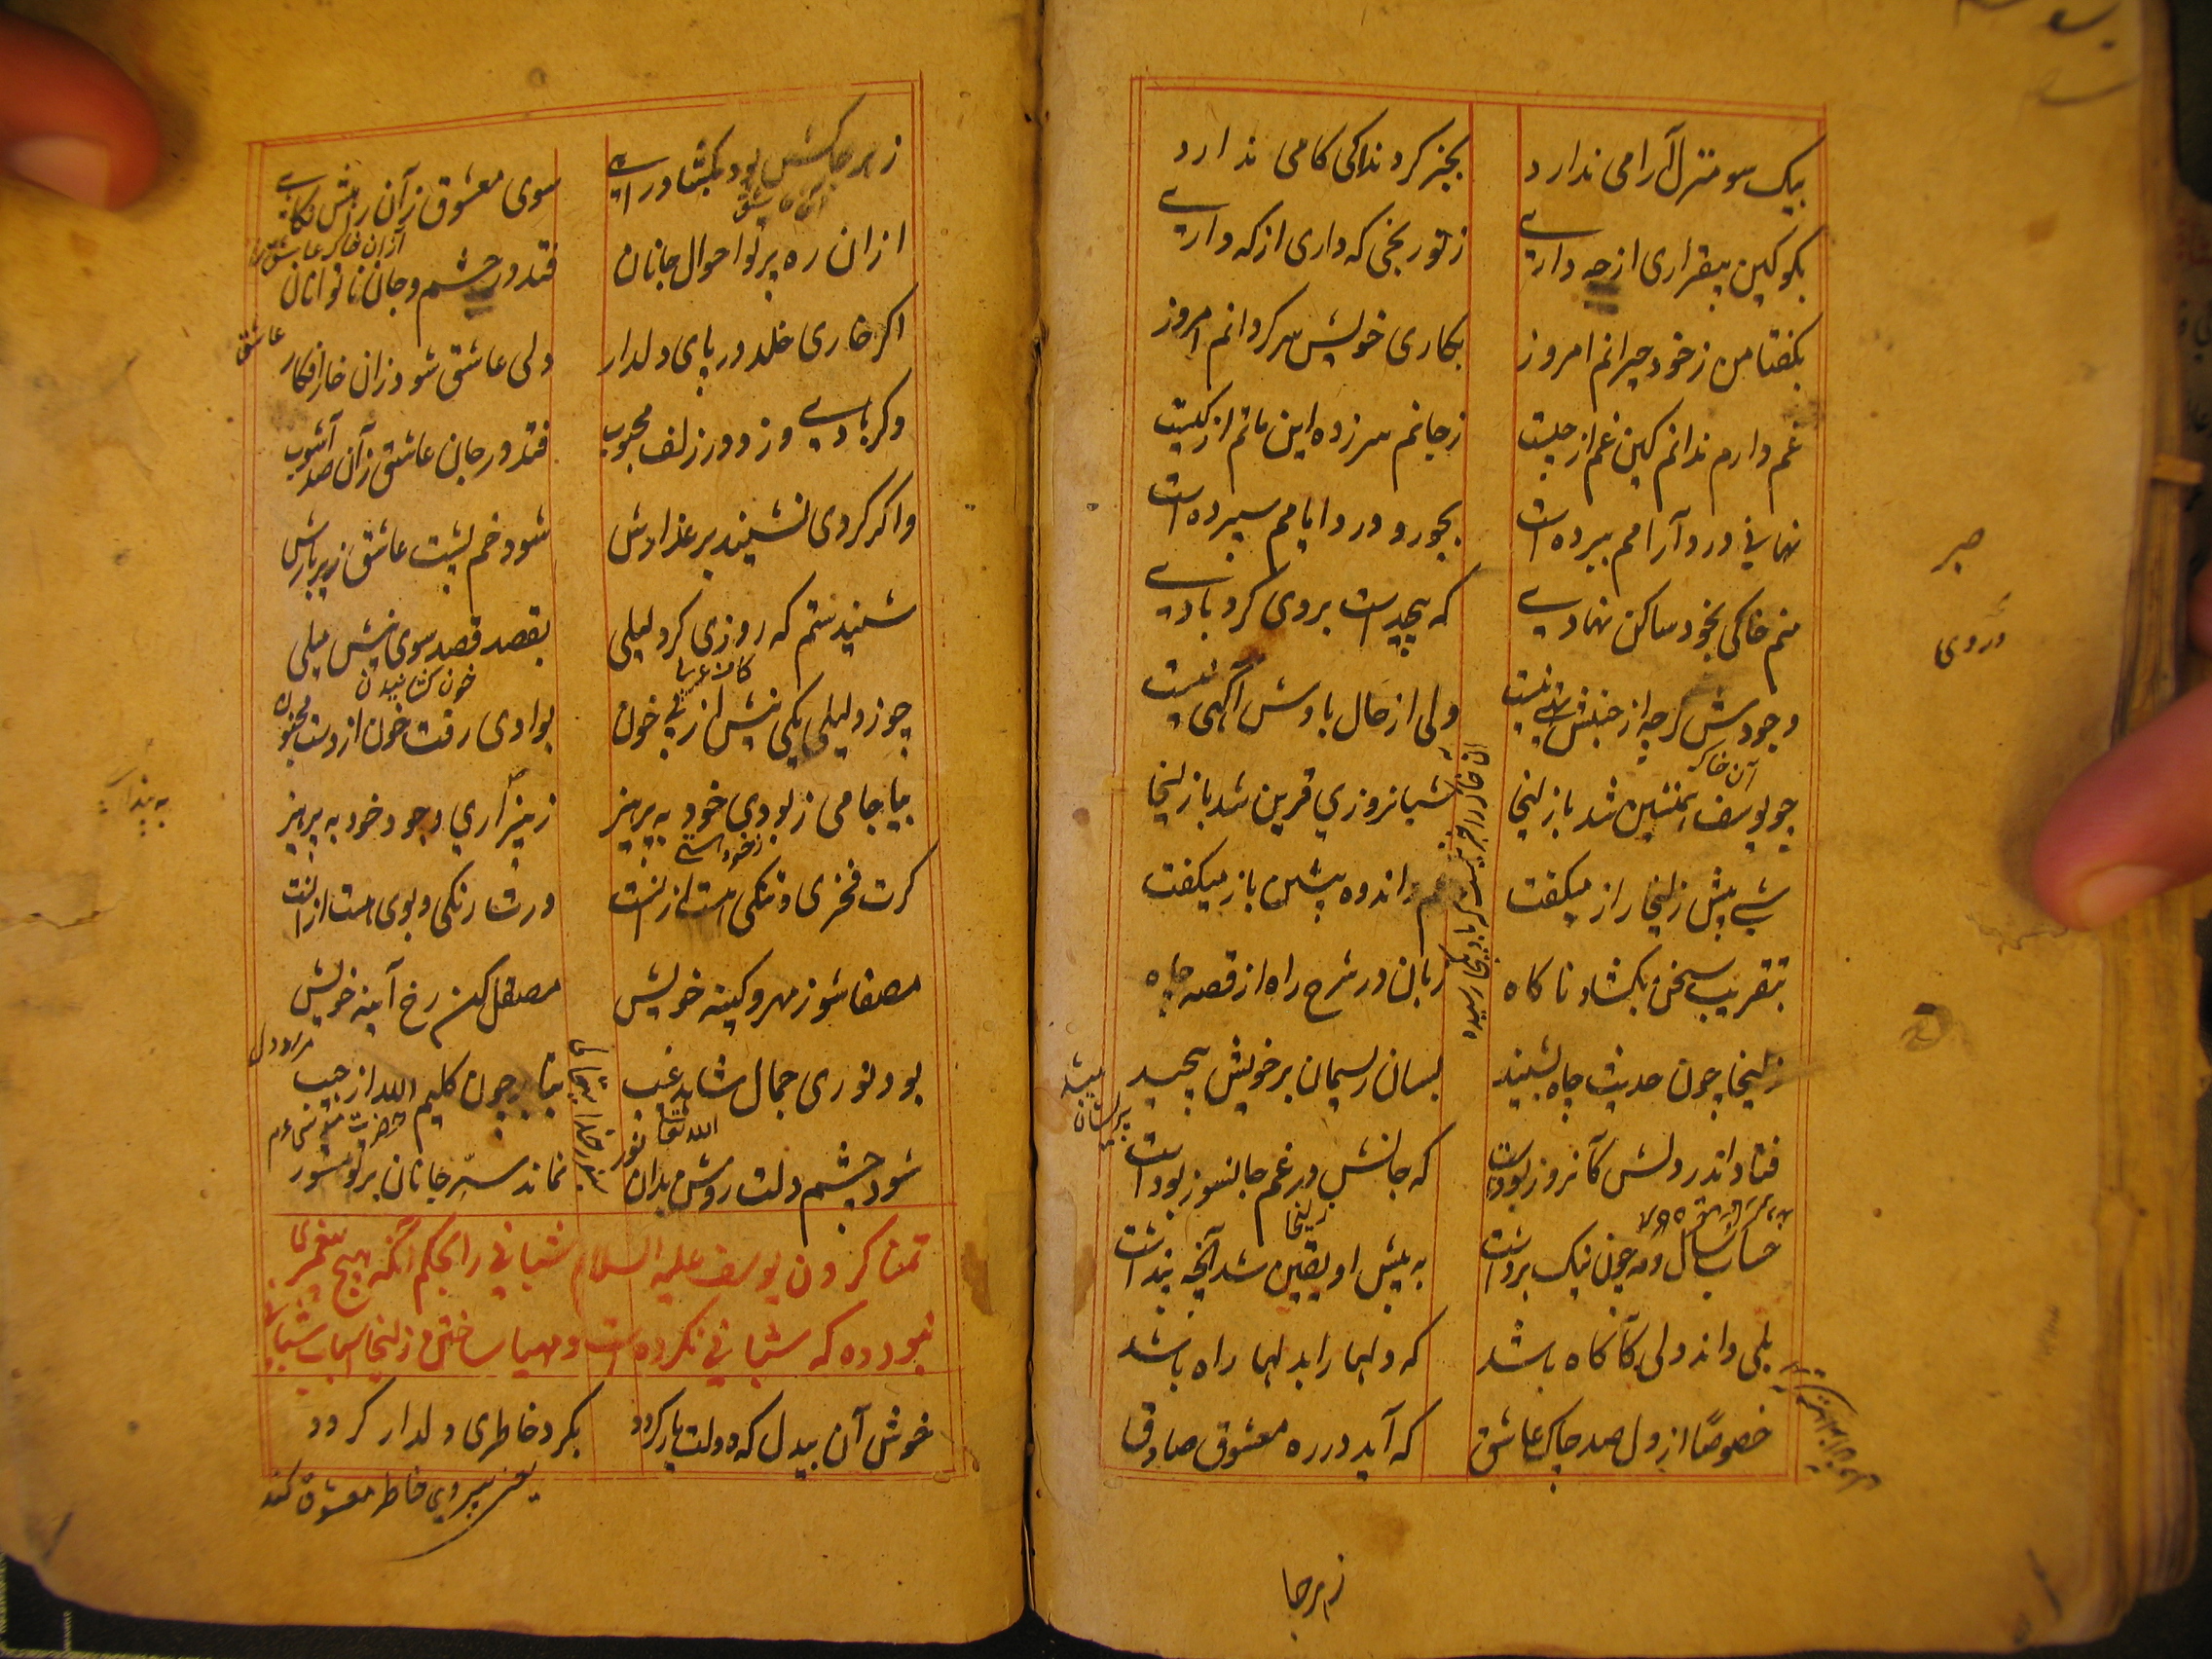 بیک سو منزل آرامی ندارد
بجز کرد ندا کی کامی ندارد
بکو کین بیقراری از چه داری
ز تو ر بخی که داری از که داری
بکفتا من ز خود حیرانم امروز
بکاری خویش سر کردانم امروز
غم دارم ندانم کین غم از چیست
ز جانم سر زده این ماتم از کیست
نهانی درد آرامم ببرده است
بجور و درد ایامم سپرده است
منم خاکی بخود ساکن نهادی
که پیچیدست بروی کرد بادی
وجودش کرچه از جنبش تهی نیست
ولی از حال بادش آکهی نیست
آن خاک
چو یوسف همنشین شد با زلیخا
شبانروزی قرین شد با زلیخا
شبی پیش زلیخا راز میکفت
غم و اندوه پیشین باز میکفت
بتقریب سخن بکشاد ناکاه
زبان در شرح راه از قصه چاه
زلیخا چون حدیث چاه بشنید
بسان ریسمان بر خویش پیچید
فتاد اندر دلش کآنروز بودست
که جانش در غم جانسوز بودست
زلیخا
حساب سال و مه چون نیک برداشت
به پیش او یقین شد آنچه پنداشت
بلی داند دلی کآکاه باشد
که دلها را بدلها راه باشد
خصوصًا از دل صد چاک عاشق
که آید در ره معشوق صادق
صبر
دردی
زهرجا
ز هر جا کش بود بکشا دراسی
سوی معشوق زان راهش نکاهی
از ان ره پرتو احوال جانان
فتد در چشم و جان ناتوانان
اکر خاری خلد در پای دلدار
دلی عاشق شود زان خار افکار
عاشق
وکر بادی وزد در زلف محبوب
فتد در جان عاشق زان صد آشوب
واکر کردی نشیند بر عذارش
شود خم پشت عاشق زیر بارش
شنیدستم که روزی کرد لیلی
بقصد قصد سوی نیش میلی
خون کشانیدن
چو زد لیلی یکی نیش از پی خون
بوادی رفت خون از دست مجنون
بیا جامی ز بودی خود به پرهیز
ز پنداری وجود خود به پرهیز
کرت فخری و ننکی هست از تست
ورت رنکی و بوی هست از تست
مصفا شو ز مهر و کینه خویش
مصقل کن رخ آینه خویش
بود نوری جمال شاهد غیب
بتابد چون کلیم الله از جیب
الله تعا
شود چشم دلت روشن بدان نور
نماند سرّ جانان بر تو مستور
تمنا کردن یوسف علیه السلام شبانی را بحکم آنکه هیچ پیغمبری
نبوده که شبانی نکرده است و مهیا ساختن زلیخا اسباب شبانی
خوش آن بیدل که دولت یار کردد
بکرد خاطری دلدار کردد
یعنی پیروی خاطر معشوق کند